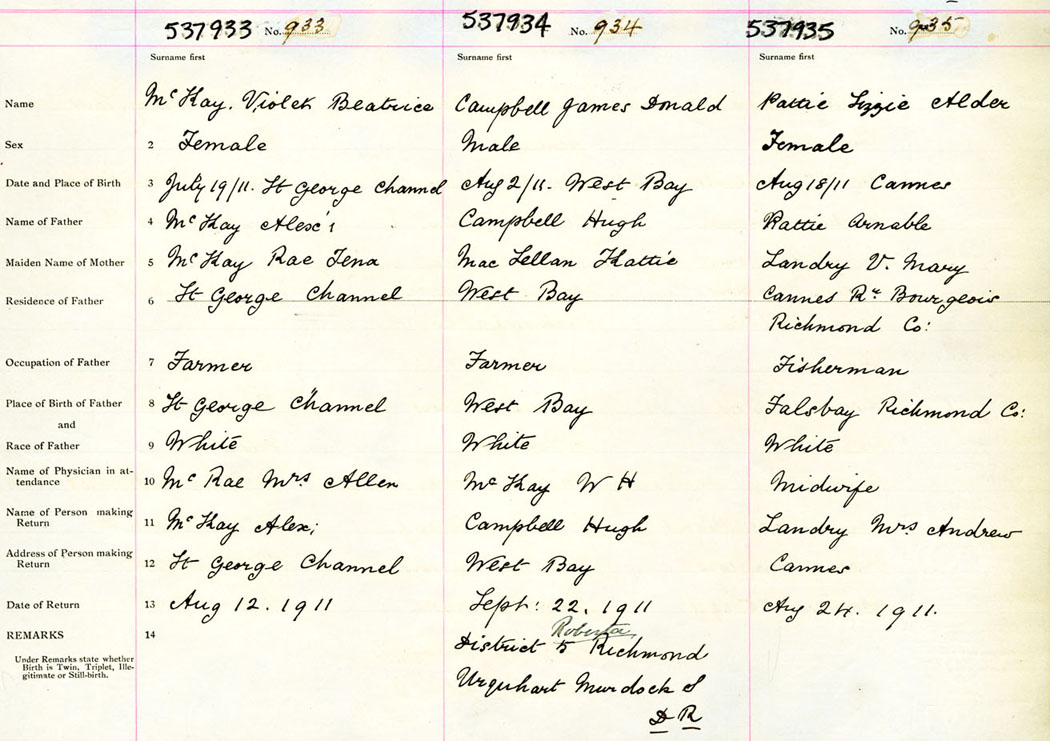 537933 No. 933 537934 No. 934 537935 No. 935
Surname first Surname first Surname first
Name McKay. Violet Beatrice Campbell James Donald Pattie Lizzie Alder
Sex 2 Female Male Female
Date and Place of Birth 3 July 19/11. St George Channel Aug 2/11. West Bay Aug 18/11 Cannes
Name of Father 4 McKay Alex Campbell Hugh Pattie Arnable
Maiden Name of Mother 5 McKay Rae Tena Mac Lellan Kattie Landry V. Mary
Residence of Father 6 St George Channel West Bay Cannes Rr Bourgeois
Richmond Co:
Occupation of Father 7 Farmer Farmer Fisherman
Place of Birth of Father 8 St George Channel West Bay Falsbay Richmond Co:
and
Race of Father 9 White White White
Name of Physician in at-
tendance 10 Mc Rae Mrs Allen McKay W H Midwife
Name of Person making
Return 11 McKay Alex; Campbell Hugh Landry Mrs Andrew
Address of Person making
Return 12 St George Channel West Bay Cannes
Date of Return 13 Aug 12. 1911 Sept: 22. 1911 Aug 24. 1911.
REMARKS 14
Roberta
District 5 Richmond
Under Remarks state whether
Birth is Twin, Triplet, Ille-
gitimate or Still-birth.
Urquhart Murdock S
D R